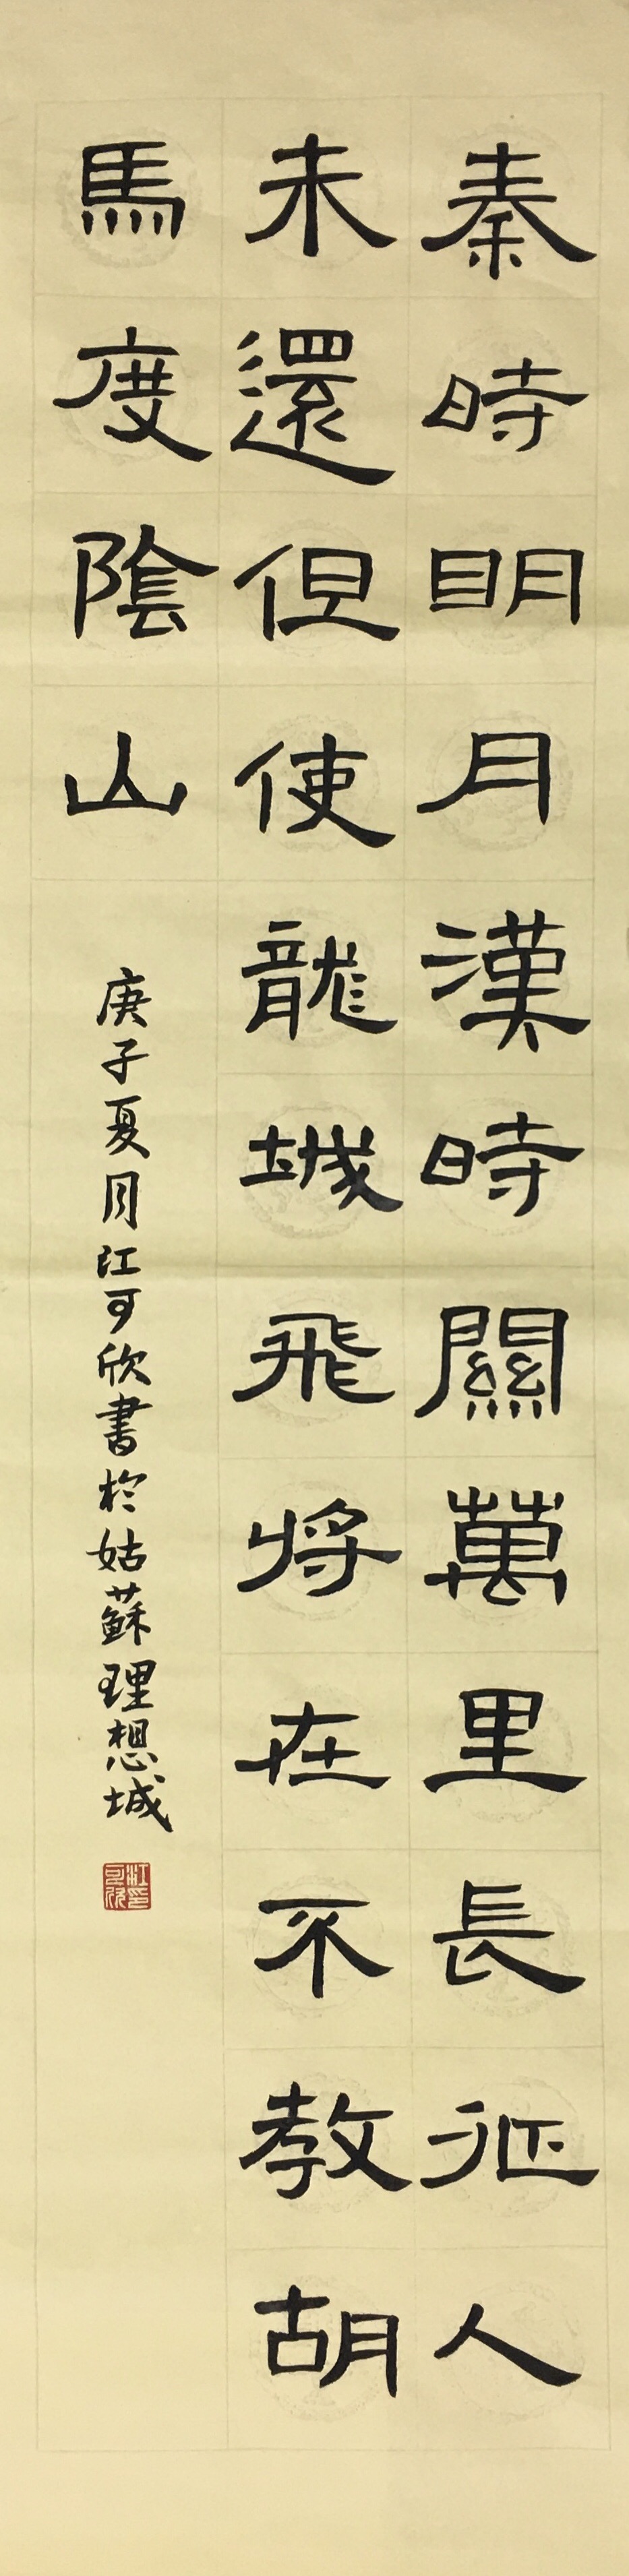 秦時明月漢時關萬里長征人
未還但使龍城飛将在不教胡
馬度陰山
庚子夏月江可欣書於姑蘇理想城
江可欣印